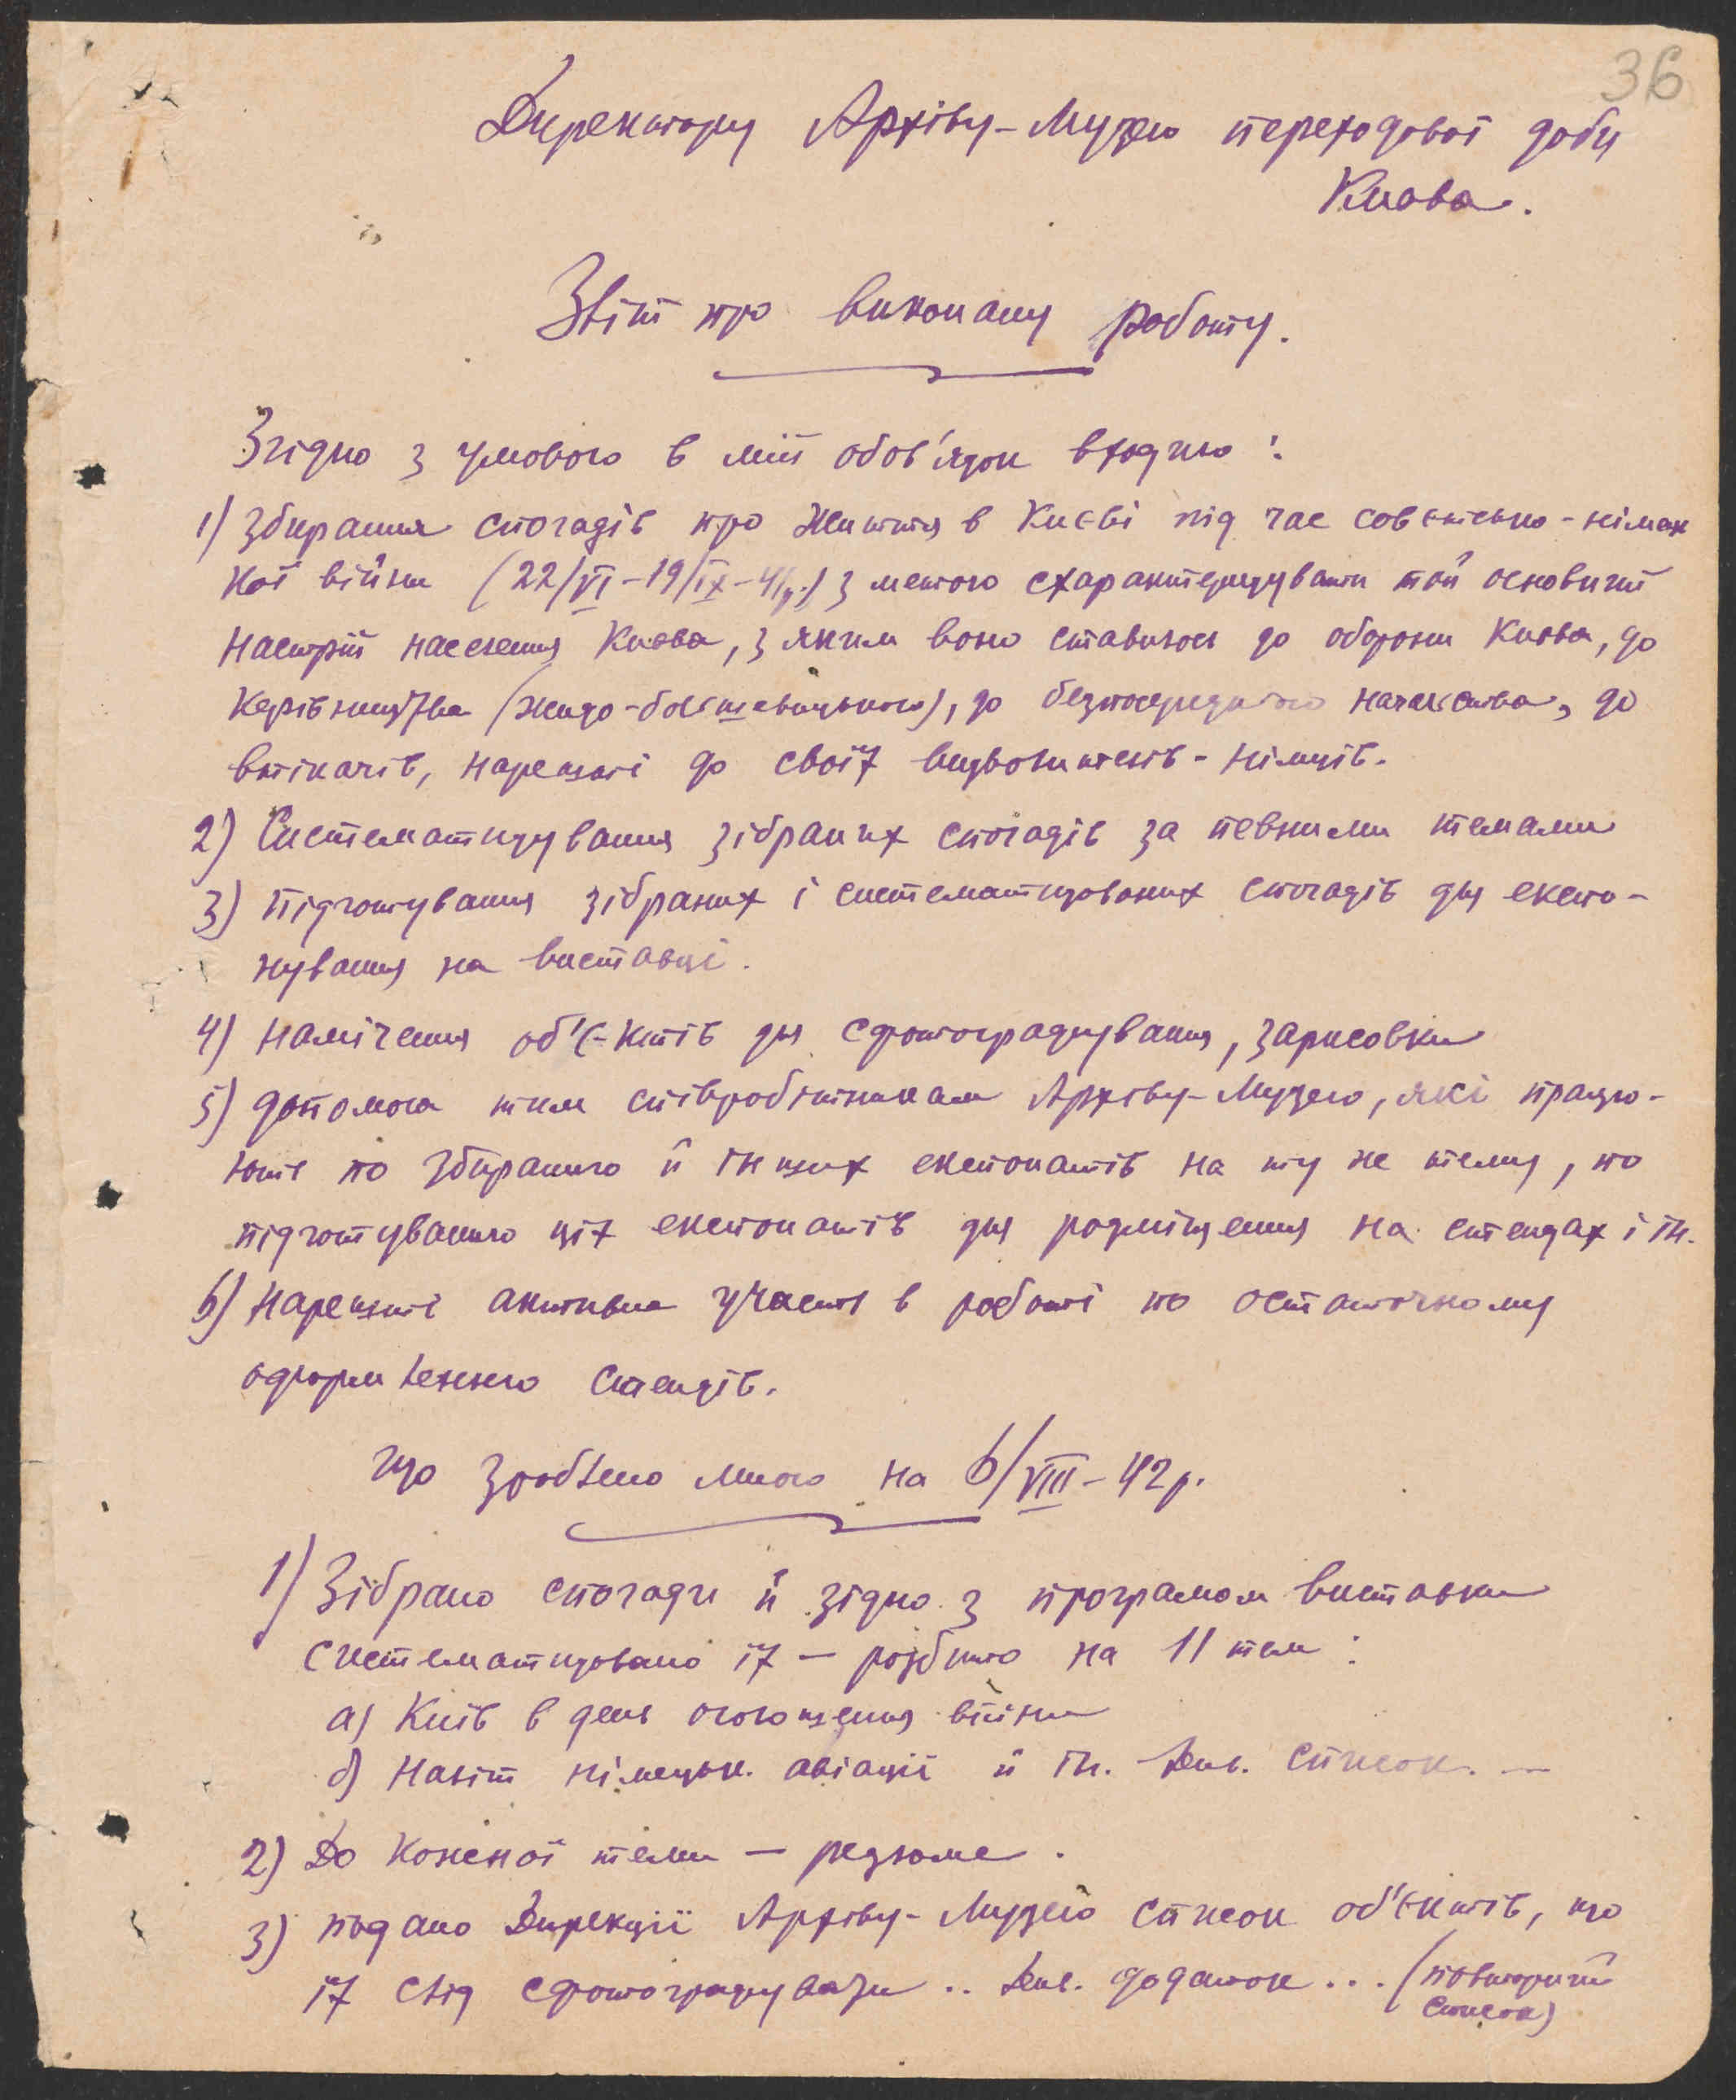 36
Директору Архіву-Музею переходової доби
Києва.
Звіт про виконану роботу.
Згідно з умовою в мій обов'язок входило:
1) Збирання спогадів про життя в Києві під час совєтсько-німець
кої війни (22/VI-19/IX-41р.) з метою схарактеризувати той основний
настрій населення Києва, з яким воно ставилось до оборони Києва, до
керівництва (жидо-большевицького), до безпосереднього начальства, до
втікачів, нарешті до своїх визволителів-німців.
2) Систематизування зібраних спогадів за певними темами
3) підготування зібраних і систематизованих спогадів для експо-
нування на виставці.
4) намічення об'єктів для сфотографування, зарисовки
5) допомога тим співробітникам Архіву-Музею, які працю-
ють по збиранню й інших експонатів на ту же тему, по
підготуванню цих експонатів для розміщення на стендах і ін.
6) нарешті активна участь в роботі по остаточному
оформленню стендів.
Що зроблено мною на 6/VIII-42р.
1) Зібрано спогади й згідно з програмом виставки
систематизовано їх — розбито на 11 тем:
а) Київ в день оголошення війни
б) наліт німецьк. авіації й ін. Див. список. —
2) До кожної теми — резюме.
3) подано Дирекції Архіву-Музею список об'єктів, що
їх слід сфотографувати.. Див. додаток... (повторний
список)